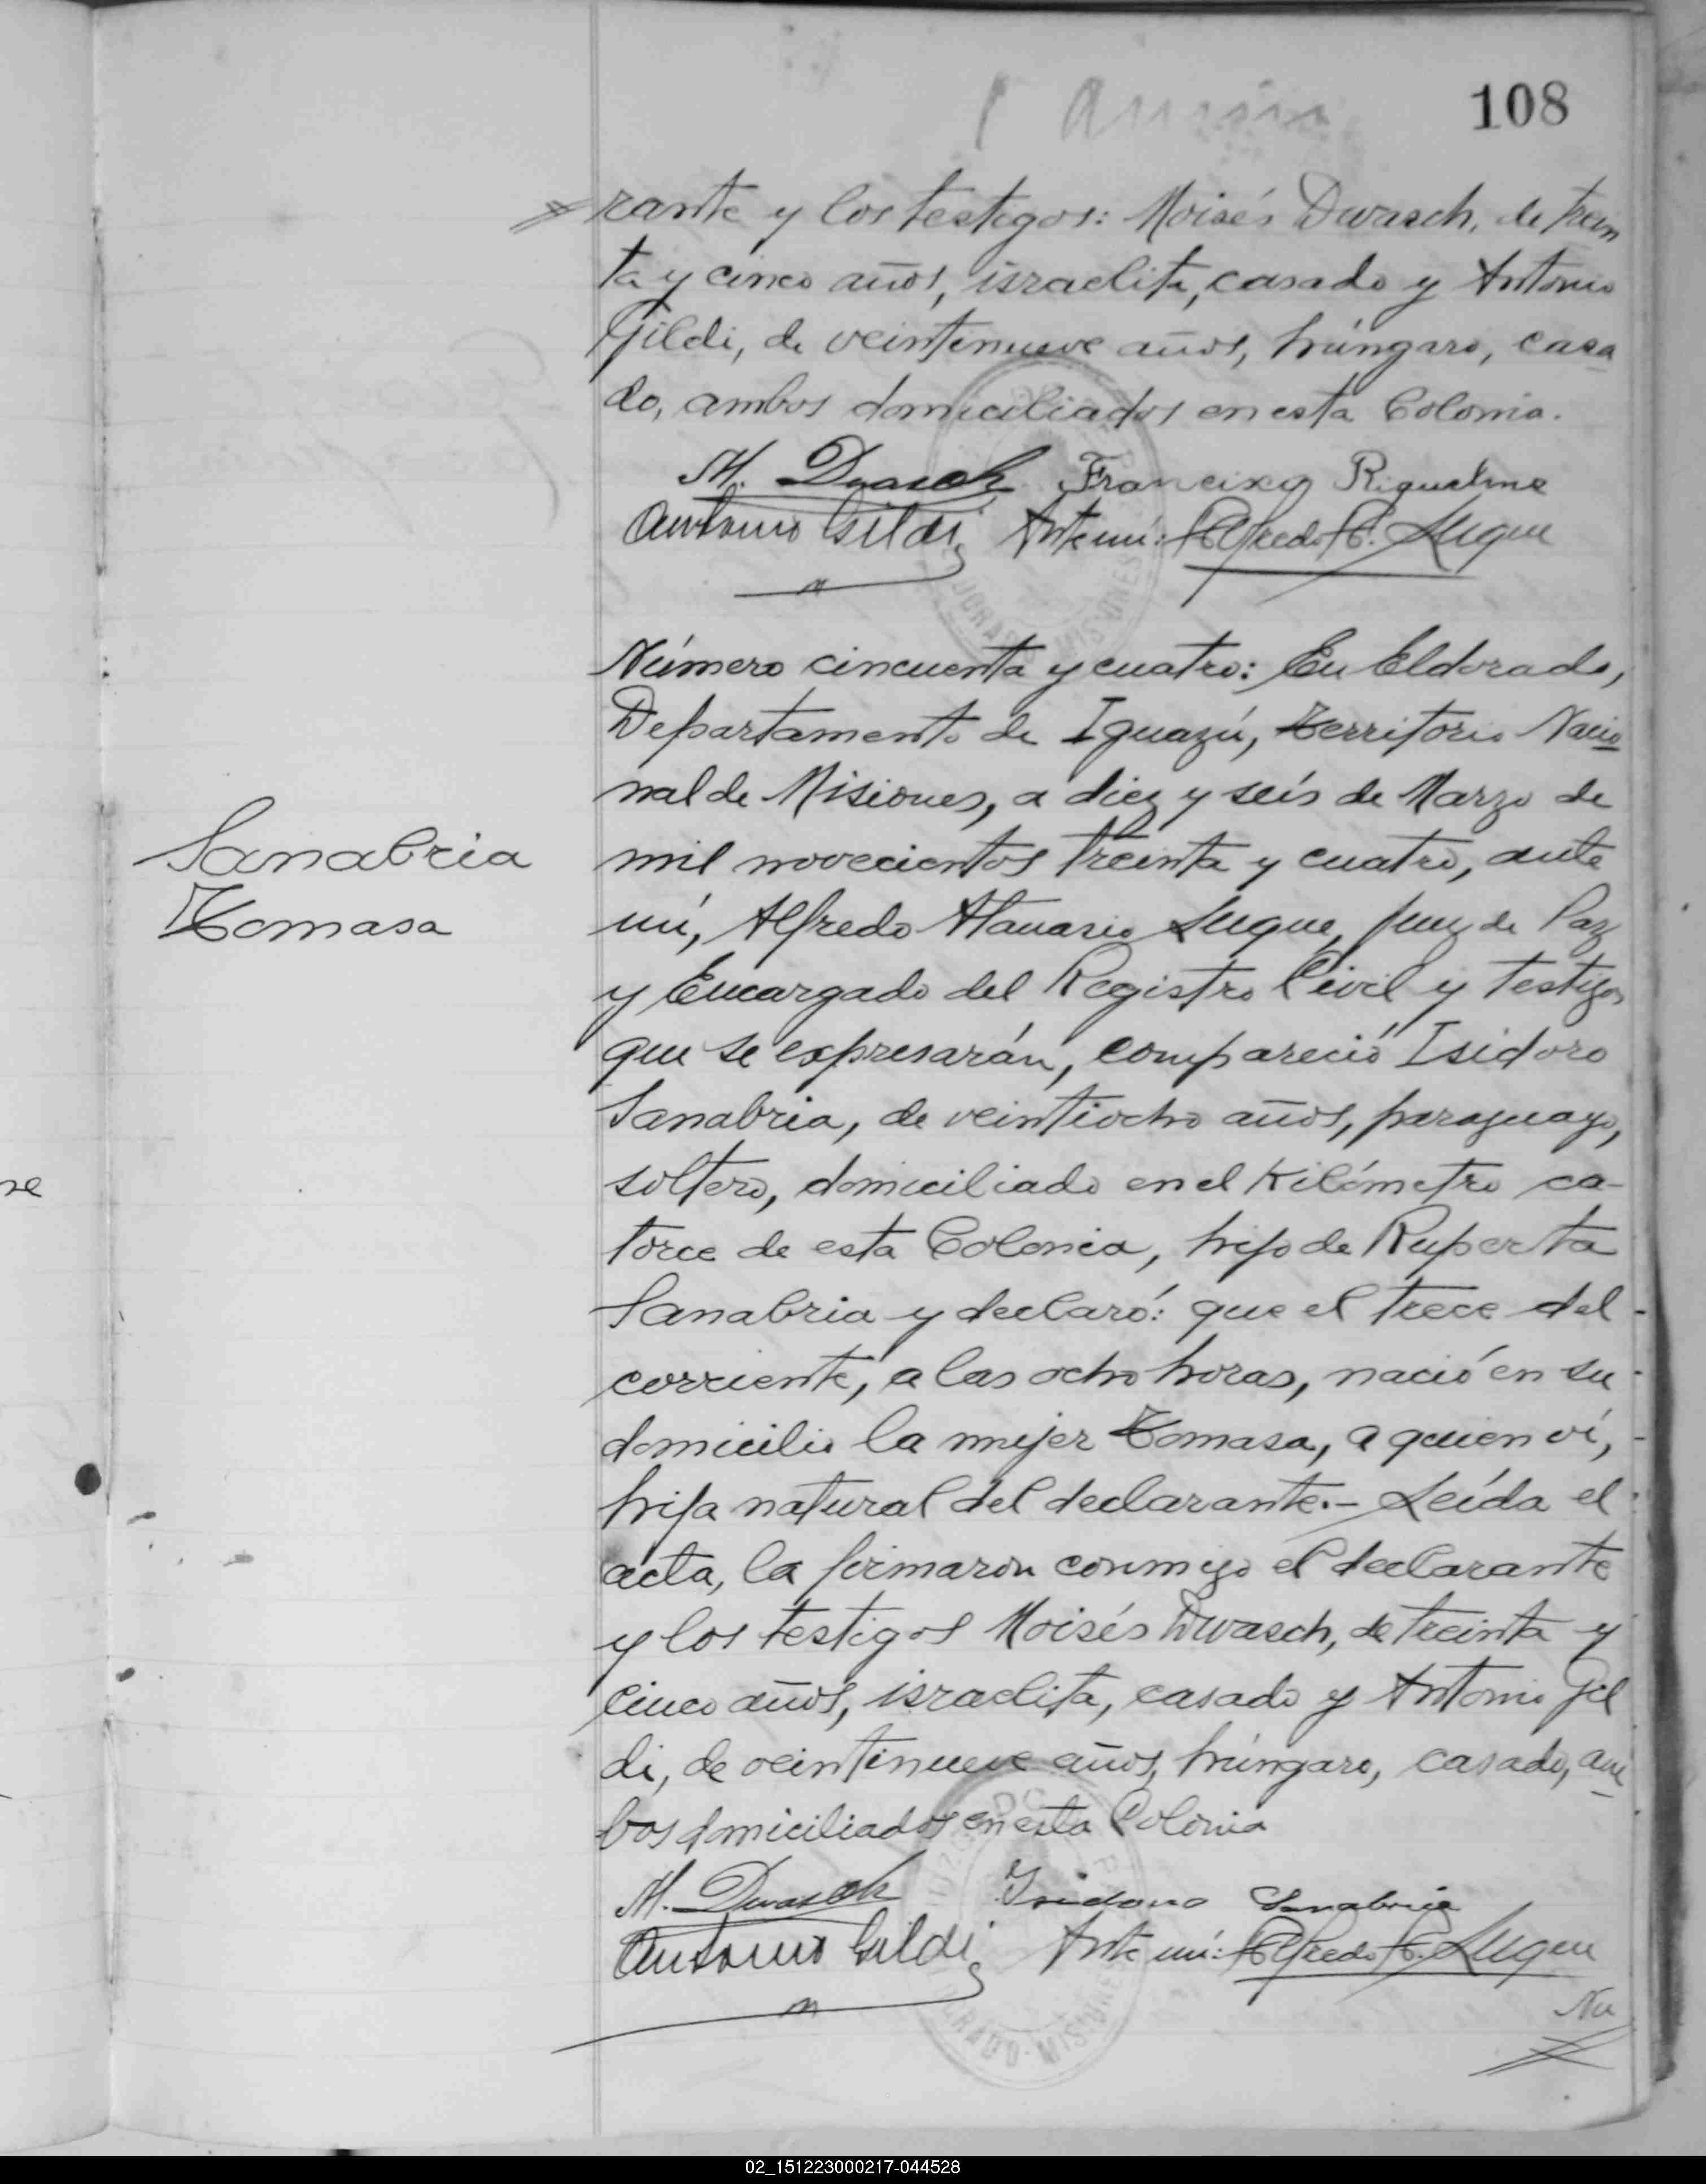 108
rante y los testigos: Moisés Dwasch, de trein
ta y cinco años, israelita, casado y Antonio
Gildi, de veintinueve años, húngaro, casa
do, ambos domiciliados en esta Colonia.
M. Dwasch Francisco Riquelme
Antonio Gildi Ante mí: Alfredo A. Luque
Número cincuenta y cuatro: En Eldorado,
Departamento de Iguazú, Territorio Nacio
nal de Misiones, a diez y seis de Marzo de
mil novecientos treinta y cuatro, ante
mí, Alfredo Atanasio Luque, Juez de Paz
y Encargado del Registro Civil y testigos
que se expresarán, compareció Isidoro
Sanabria, de veintiocho años, paraguayo,
soltero, domiciliado en el Kilómetro ca-
torce de esta Colonia, hijo de Ruperta
Sanabria y declaró: que el trece del
corriente, a las ocho horas, nació en su
domicilio la mujer Tomasa, a quien ví,
hija natural del declarante.- Leída el
acta, la firmaron conmigo el declarante
y los testigos Moisés Dwasch, de treinta y
cinco años, israelita, casado y Antonio Gil
di, de veintinueve años, húngaro, casado, am
bos domiciliados en esta Colonia
M. Dwasch Isidoro Sanabria
Antonio Gildi Ante mí: Alfredo A. Luque
Nu
Sanabria
Tomasa
02_151223000217-044528